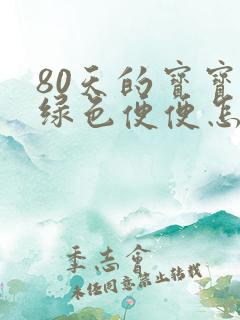 80天的宝宝
绿色便便怎
季志会
未经同意禁止转载